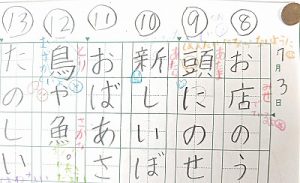 7月3日
⑧
お店のう
⑨
頭にのせ
⑩
新しいぼ
⑪
おばあさ
⑫
鳥や魚。
⑬
たのしい